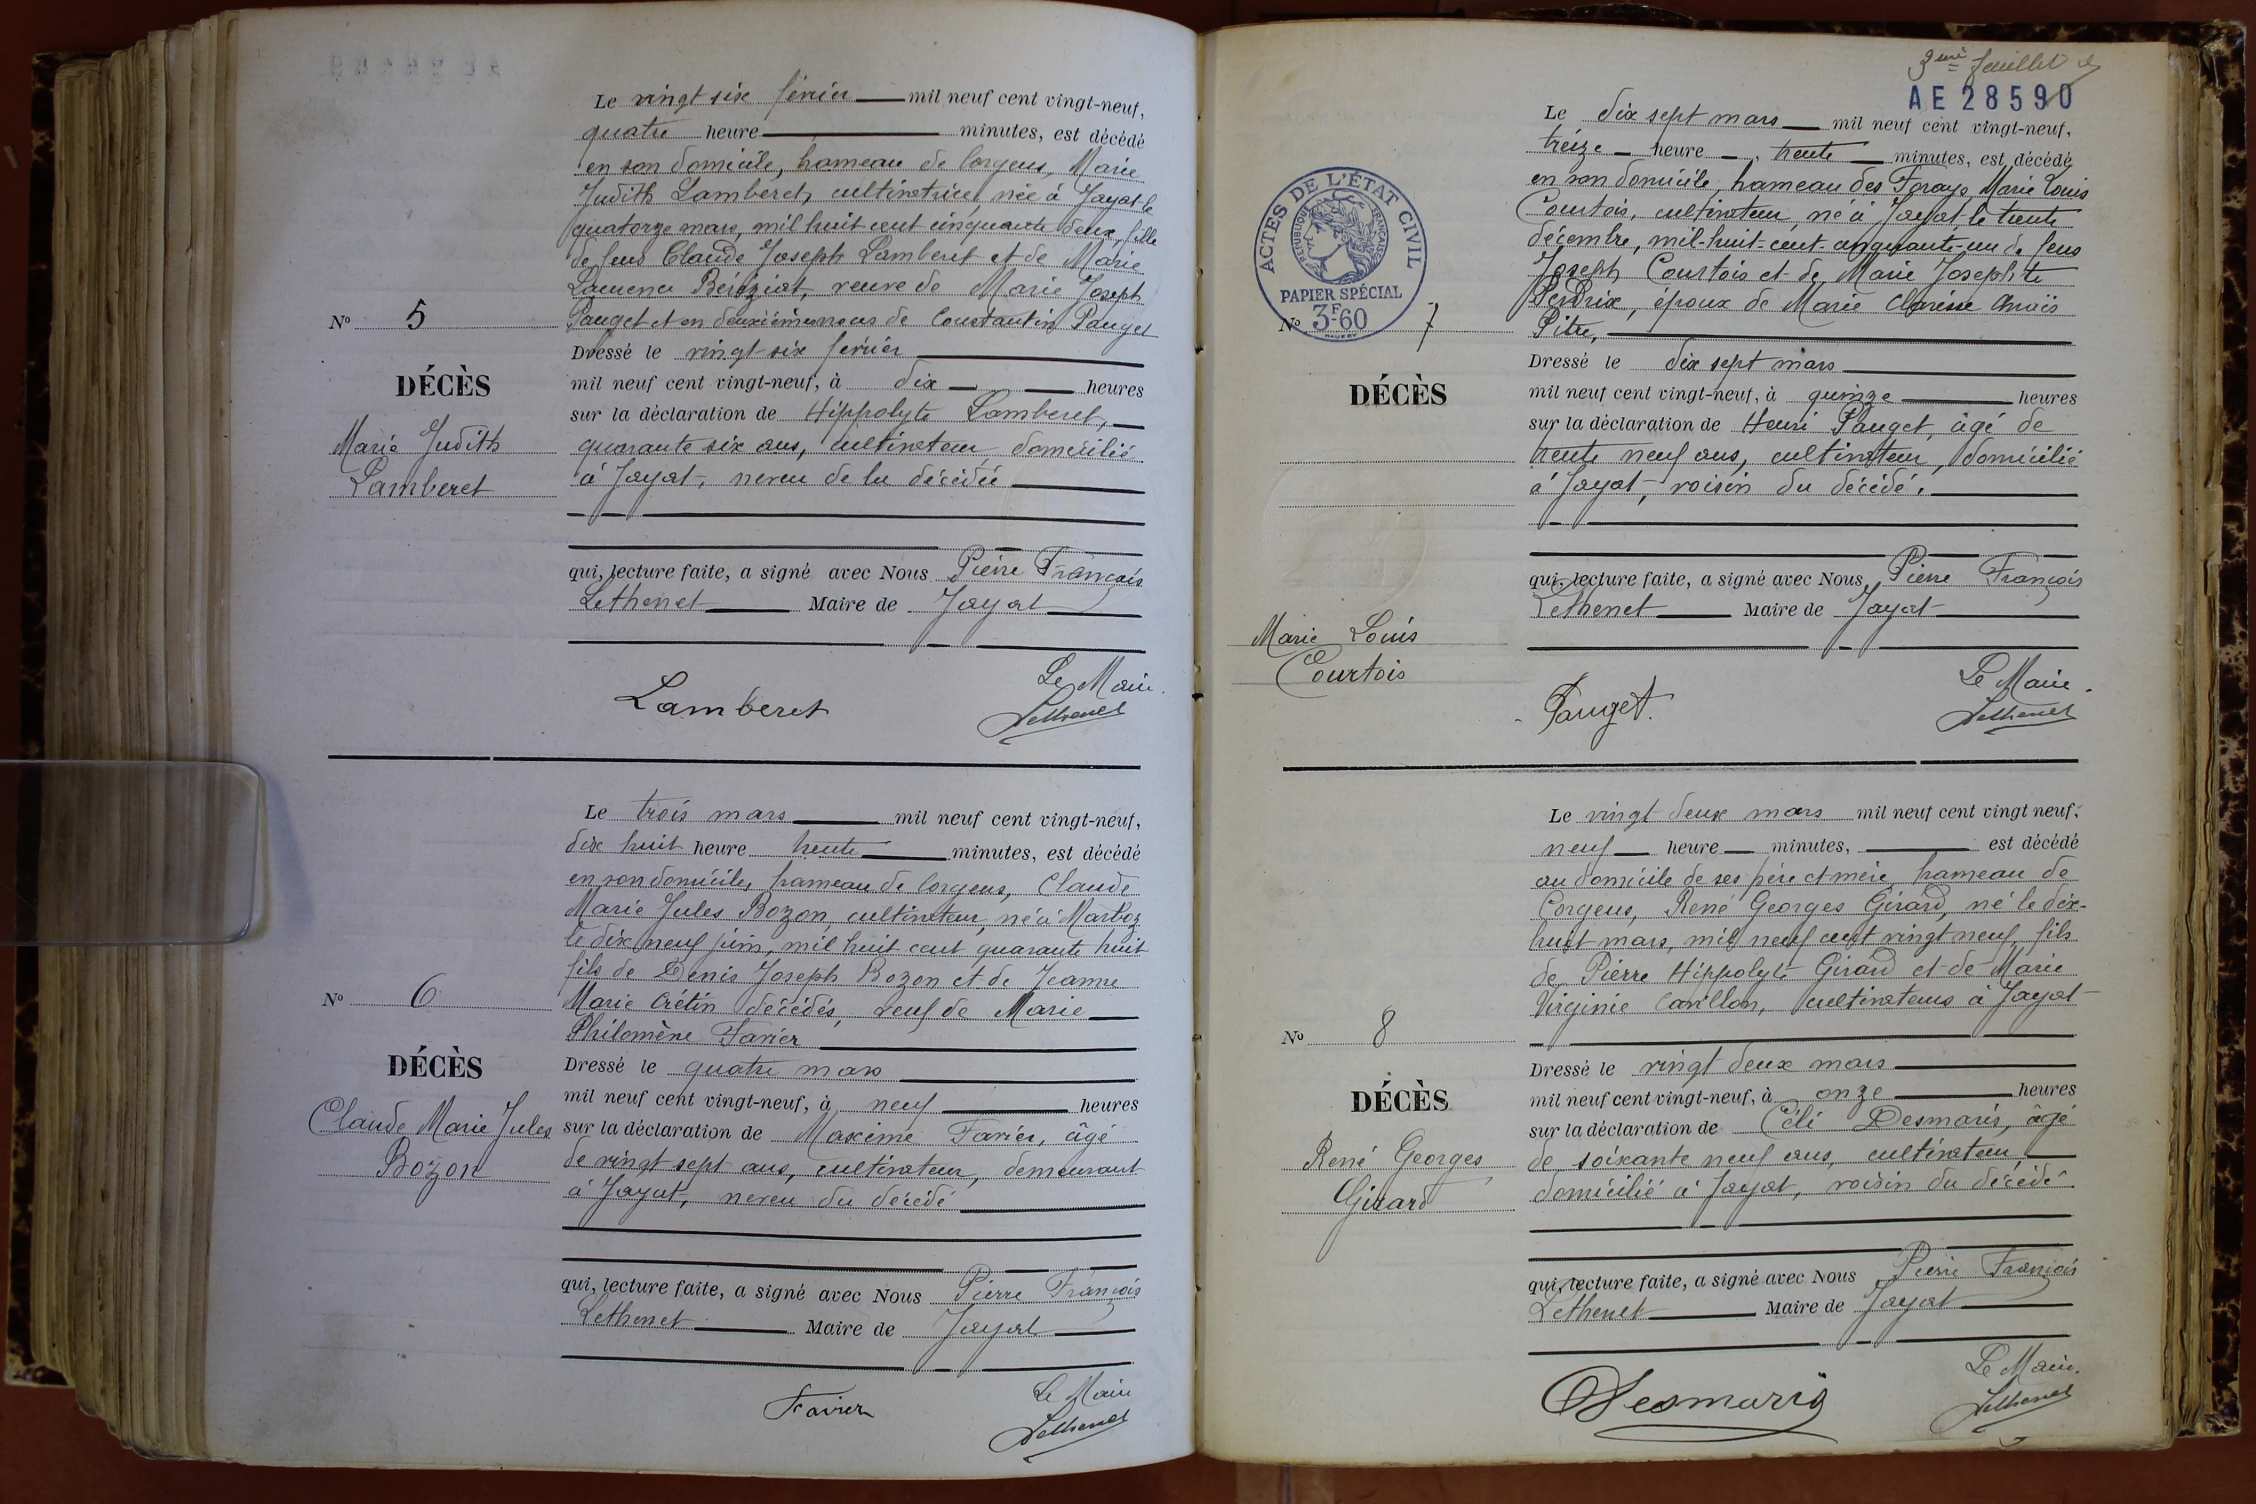 Le vingt six février mil neuf cent vingt-neuf,
quatre heure minutes, est décédé
en son domicile, hameau de Corgeus, Marie
Judith Lamberet, cultivatrice, née à Jayat le
quatorze mars, mil huit cent cinquante deux, fille
de feus Claude Joseph Lamberet et de Marie
Laurence Béréziat, veuve de Marie Joseph
Pauget et en deuxièmes noces de Constantin Pauget
Nº 5
DÉCÈS
Marie Judith
Lamberet
Dressé le vingt-six février
mil neuf cent vingt-neuf, à dix heures
sur la déclaration de Hippolyte Lamberet,
quarante six ans, cultivateur, domicilié
à Jayat, neveu de la décédée
qui, lecture faite, a signé avec Nous Pierre François
Lethenet Maire de Jayat
Le Maire.
Lamberet
Lethenet
Le trois mars mil neuf cent vingt-neuf,
dix huit heure trente minutes, est décédé
en son domicile, hameau de Corgeus, Claude
Marie Jules Bozon, cultivateur, né à Marboz
le dix neuf juin, mil huit cent quarante huit
fils de Denis Joseph Bozon et de Jeanne
Marie Crétin décédés, veuf de Marie
Philomène Favier
Nº 6
DÉCÈS
Claude Marie Jules
Bozon
Dressé le quatre mars
mil neuf cent vingt-neuf, à neuf heures
sur la déclaration de Maxime Favier, âgé
de vingt sept ans, cultivateur, demeurant
à Jayat, neveu du décédé
qui, lecture faite, a signé avec Nous Pierre François
Lethenet Maire de Jayat
Le Maire
Favier
Lethenet
3ème feuillet
AE 28590
ACTES DE L'ÉTAT CIVIL
RÉPUBLIQUE FRANÇAISE
PAPIER SPÉCIAL
3F-60
Le dix sept mars mil neuf cent vingt-neuf,
treize heure, trente minutes, est décédé
en son domicile, hameau des Forays, Marie Louis
Courtois, cultivateur, né à Jayat le trente
décembre, mil-huit-cent-cinquante-un de feus
Joseph Courtois et de Marie Josephte
Perdrix, époux de Marie Clarisse Anaïs
Pitre,
Nº 7
DÉCÈS
Marie Louis
Courtois
Dressé le dix sept mars
mil neuf cent vingt-neuf, à quinze heures
sur la déclaration de Henri Pauget, âgé de
trente neuf ans, cultivateur, domicilié
à Jayat, voisin du décédé.
qui, lecture faite, a signé avec Nous Pierre François
Lethenet Maire de Jayat
Le Maire.
Pauget.
Lethenet
Le vingt deux mars mil neuf cent vingt neuf.
neuf heure minutes, est décédé
au domicile de ses père et mère hameau de
Corgeus, René Georges Girard, né le dix-
huit mars, mil neuf cent vingt neuf, fils
de Pierre Hippolyte Girard et de Marie
Virginie Carillon, cultivateurs à Jayat
Nº 8
DÉCÈS
René Georges
Girard
Dressé le vingt deux mars
mil neuf cent vingt-neuf, à onze heures
sur la déclaration de Céli Desmaris, âgé
de soixante neuf ans, cultivateur,
domicilié à Jayat, voisin du décédé
qui, lecture faite, a signé avec Nous Pierre François
Lethenet Maire de Jayat
Le Maire.
Desmaris
Lethenet